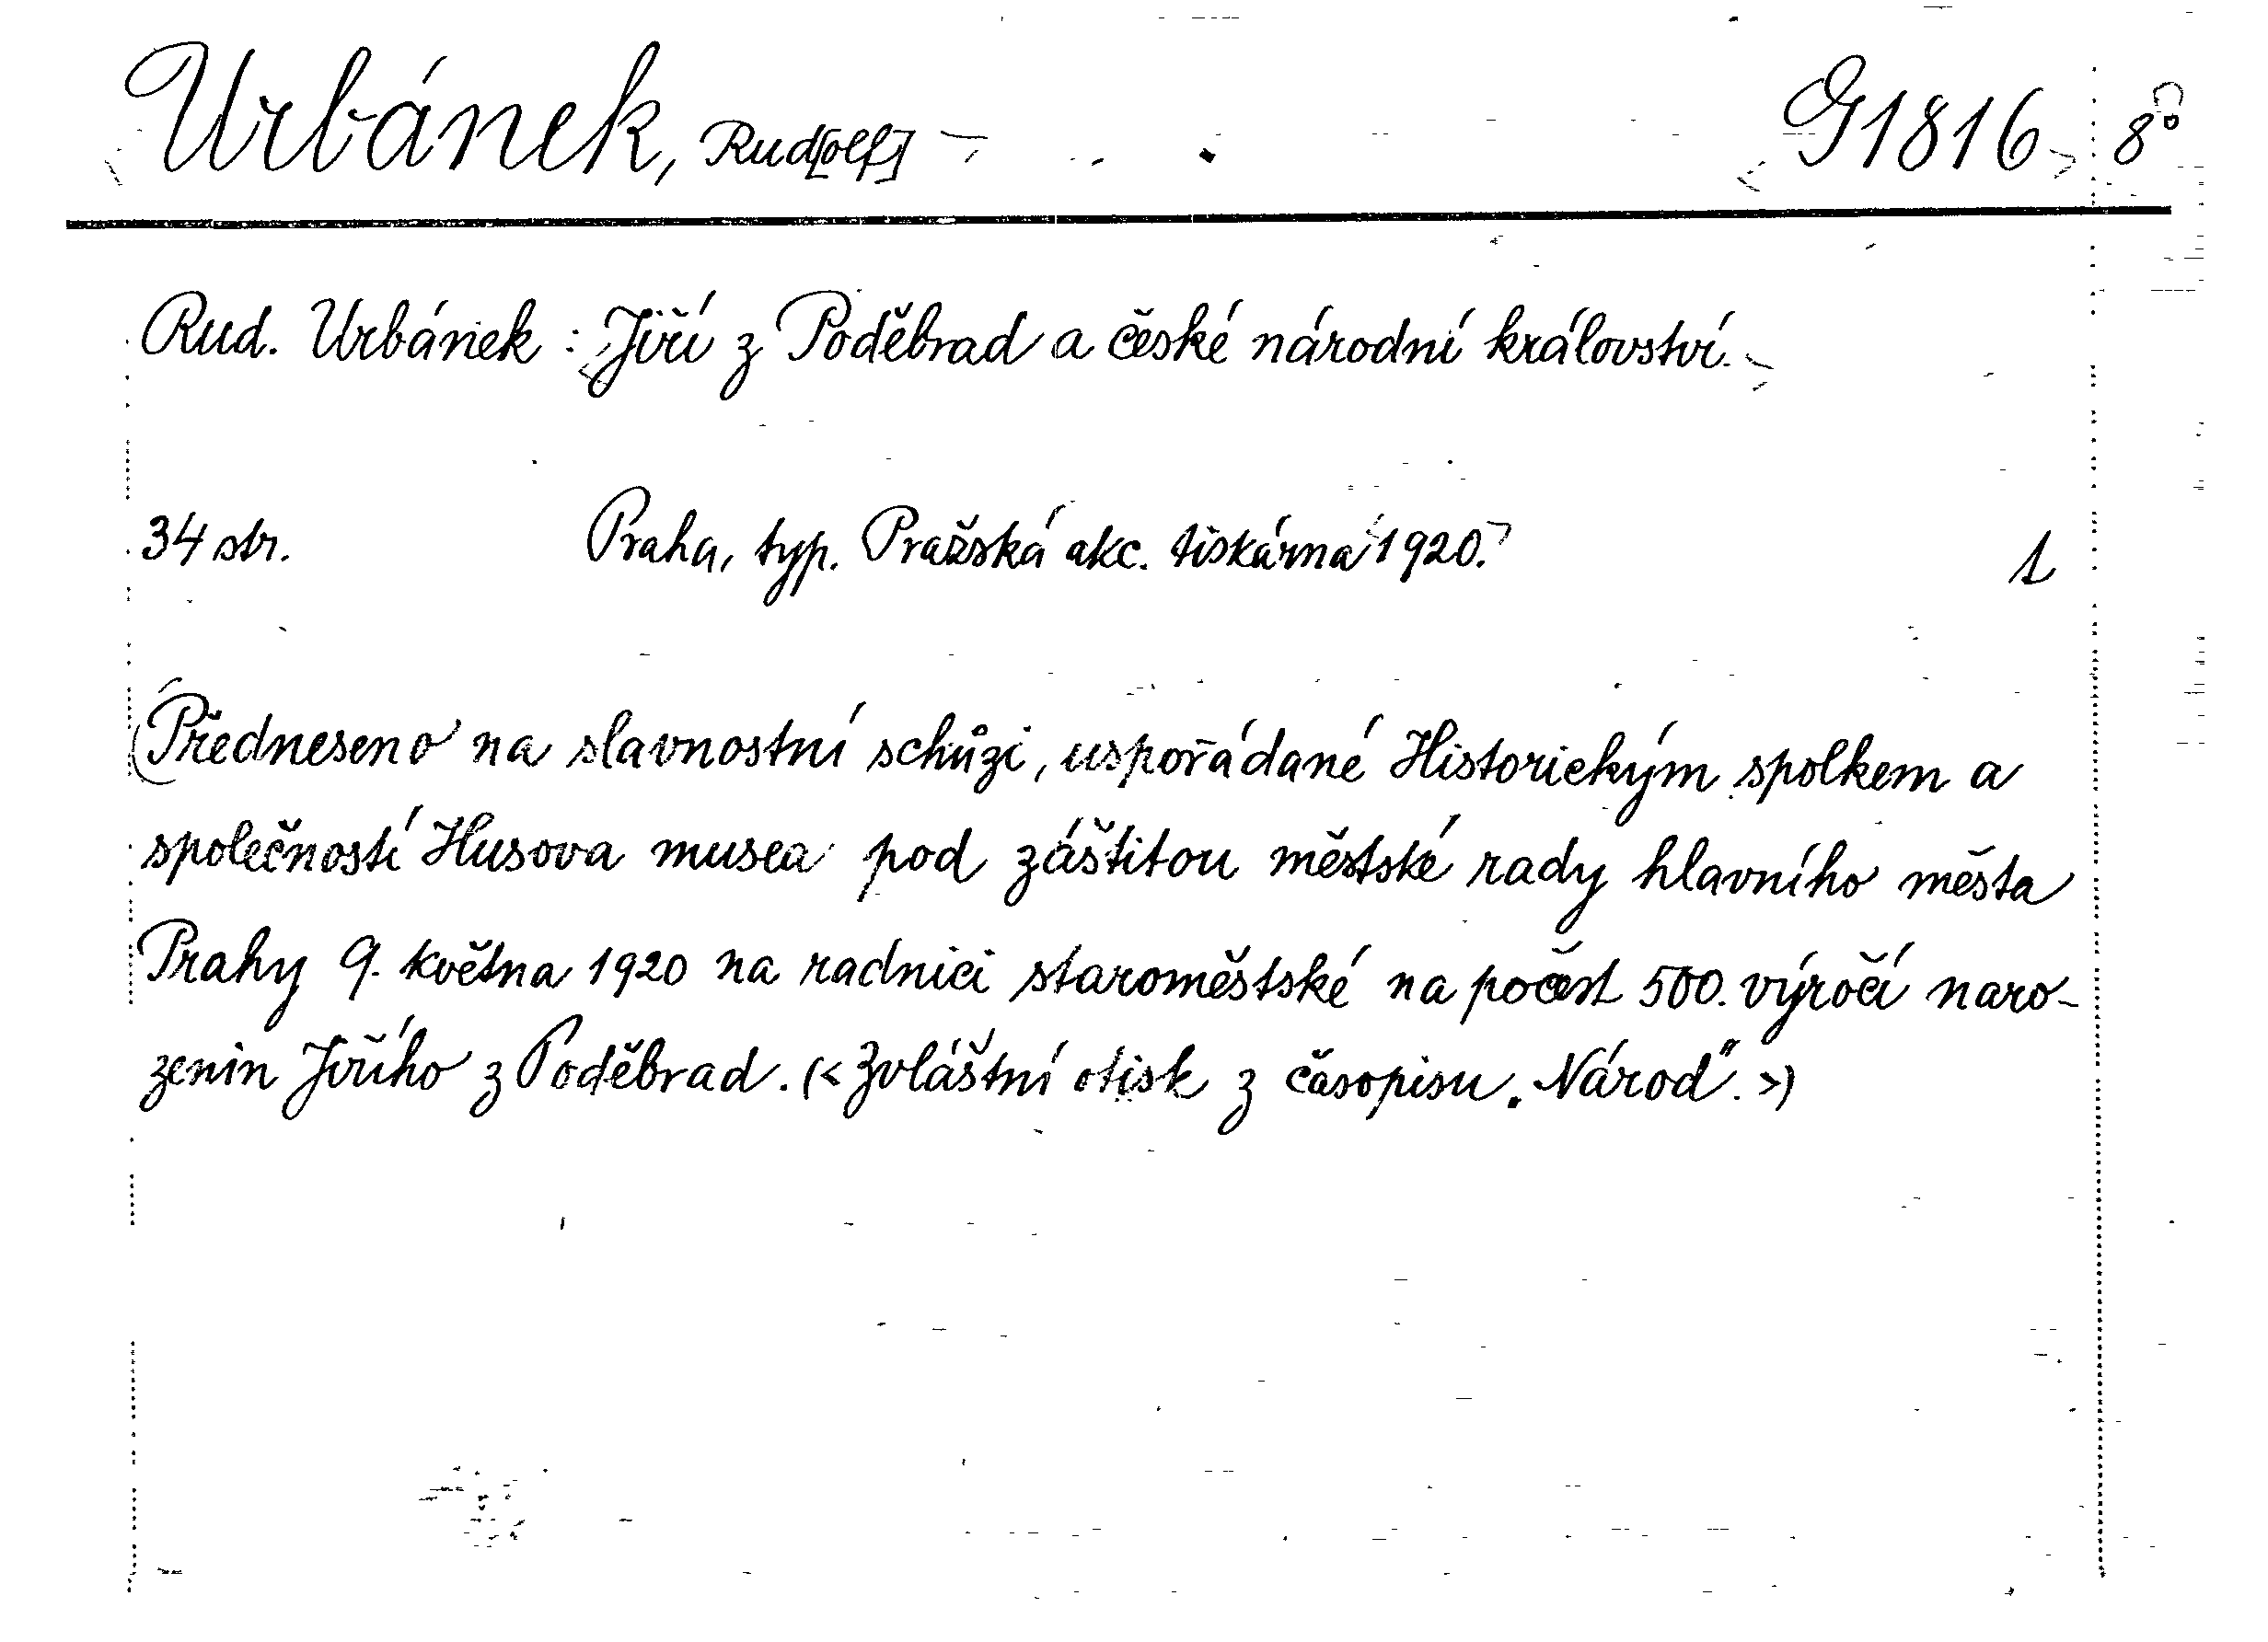 Urbánek, Rud[olf] G1816 8°
Rud. Urbánek : Jiří z Poděbrad a české národní království.
34 str. Praha, typ. Pražská akc. tiskárna 1920. 1
(Předneseno na slavnostní schůzi, uspořádané Historickým spolkem a
společností Husova musea pod záštitou městské rady hlavního města
Prahy 9. května 1920 na radnici staroměstské na počest 500. výročí naro-
zenin Jiřího z Poděbrad. (<Zvláštní otisk z časopisu „Národ“.>)